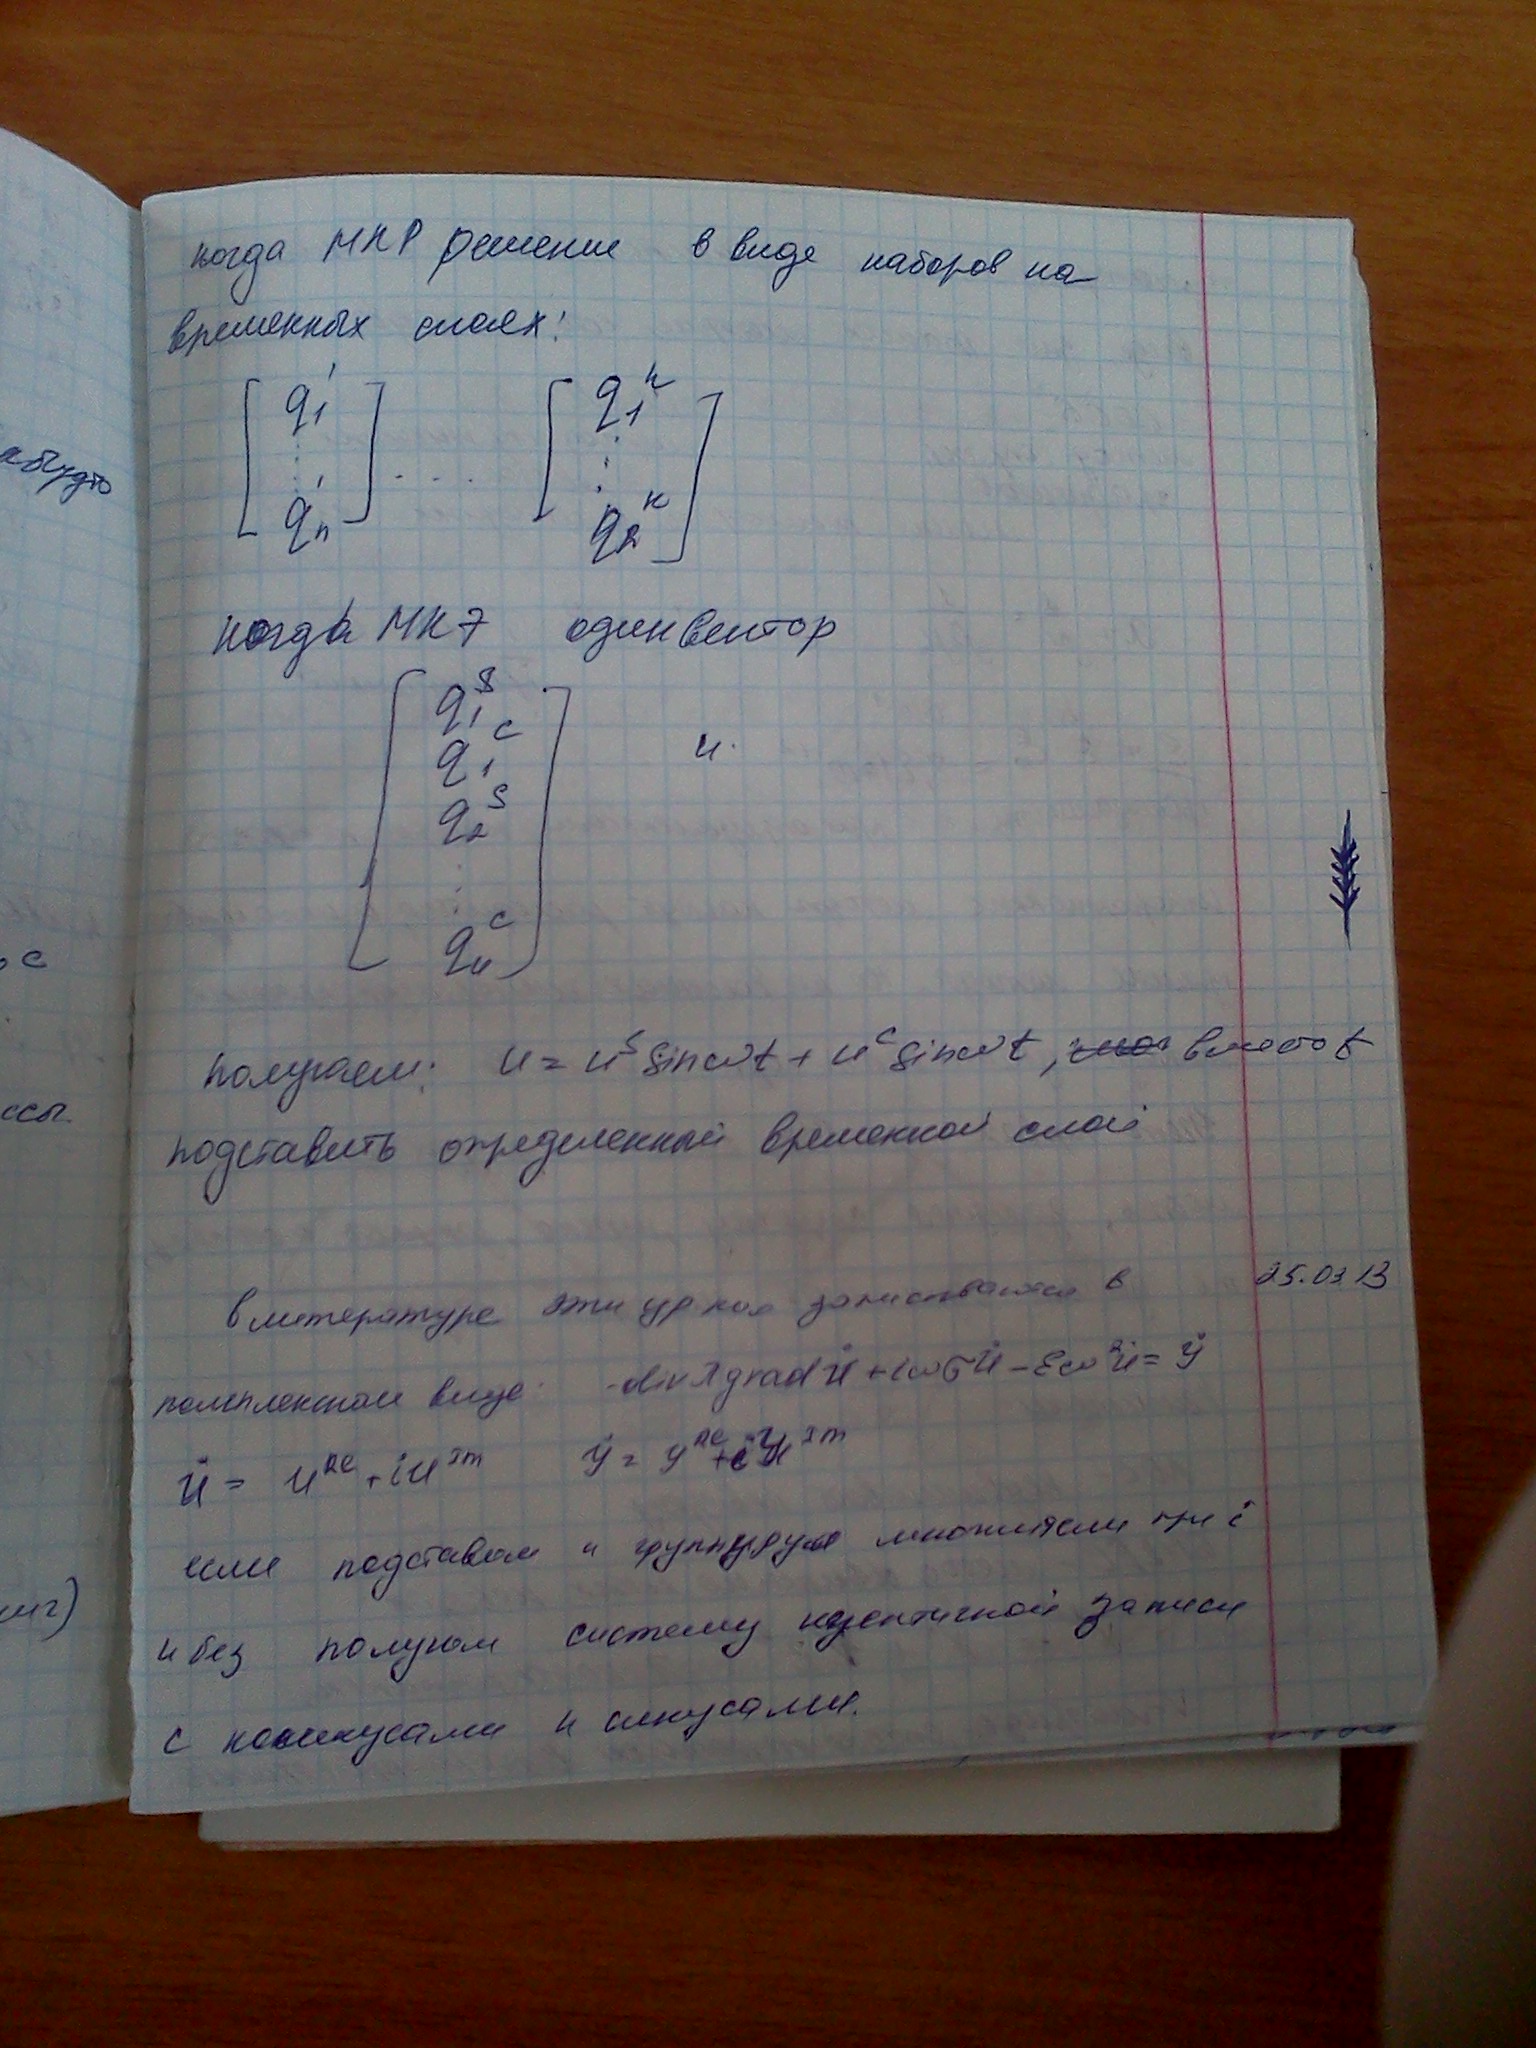 когда МКР решение в виде наборов на
временных слоях:
q₁¹ q₁ᵏ
⋮ .... ⋮
qₙ¹ q₂ᵏ
когда МКЭ один вектор
q₁ˢ
q₁ᶜ и.
q₂ˢ
⋮
qₙᶜ
получаем: u = uˢ sinωt + uᶜ sinωt, вместо t
подставить определенный временной слой
25.03.13
в литературе эти ур записываются в
комплексном виде: -div λ grad ü + iωσü - εω²ü = ÿ
ü = uᴿᵉ + iuᴵᵐ ÿ = yᴿᵉ + iyᴵᵐ
если подставим и группируем множители при i
и без получим систему идентичной записи
с косинусами и синусами.
абудто
с
ссы.